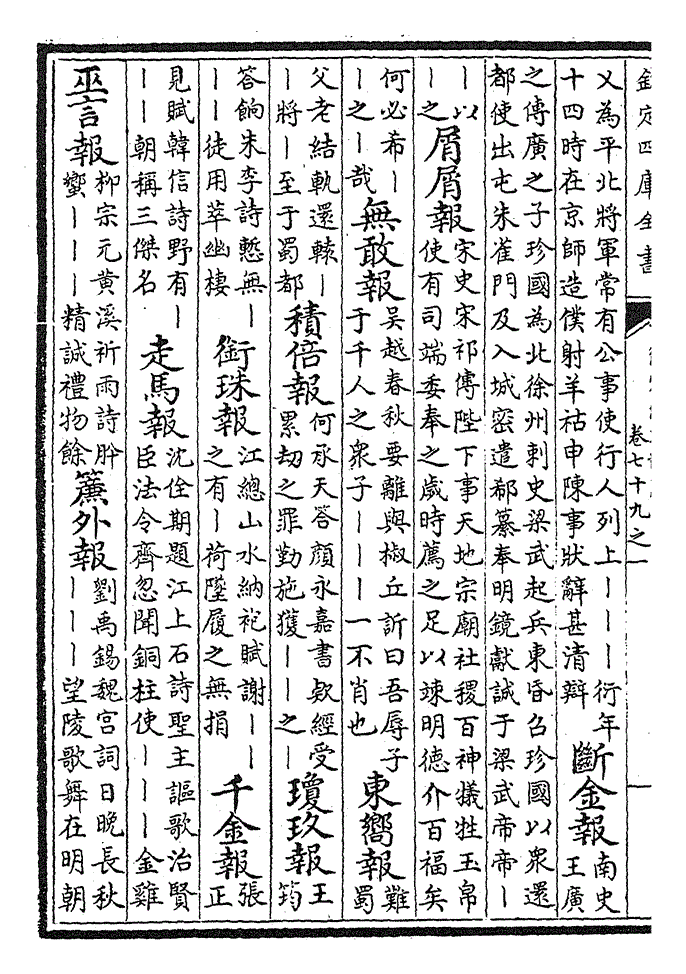 欽定四庫全書
卷七十九之一
乂為平北將軍常有公事使行人列上｜｜｜衍年
十四時在京師造僕射羊祜申陳事狀辭甚清辯
斷金報
南史
王廣
之傳廣之子珍國為北徐州刺史梁武起兵東昏召珍國以衆還
都使出屯朱雀門及入城密遣郗纂奉明鏡獻誠于梁武帝帝｜
｜以
｜之
屑屑報
宋史宋祁傳陛下事天地宗廟社稷百神犧牲玉帛
使有司端委奉之歲時薦之足以竦明德介百福矣
何必希｜
｜之｜哉
無敢報
吳越春秋要離與椒丘訢曰吾辱子
于千人之衆子｜｜｜一不肖也
東嚮報
難
蜀
父老結軌還轅｜
｜將｜至于蜀都
積倍報
何承天答顔永嘉書欵經受
累劫之罪勤施獲｜｜之｜
瓊玖報
王
筠
答餉朱李詩慙無｜
｜｜徒用萃幽棲
銜珠報
江總山水納袍賦謝｜｜
之有｜荷墜履之無捐
千金報
張
正
見賦韓信詩野有｜
｜｜朝稱三傑名
走馬報
沈佺期題江上石詩聖主謳歌治賢
臣法令齊忽聞銅柱使｜｜｜金雞
巫言報
柳宗元黄溪祈雨詩肹
蠁｜｜｜精誠禮物餘
簾外報
劉禹錫魏宮詞日晚長秋
｜｜｜望陵歌舞在明朝